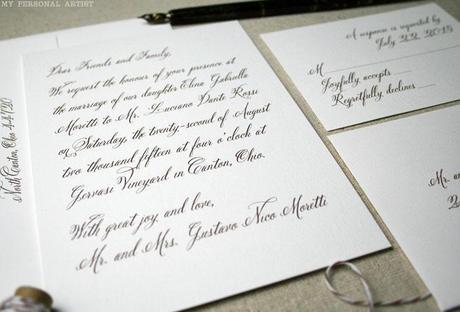 MY PERSONAL ARTIST
Dear Friends and Family,
We request the honour of your presence at
the marriage of our daughter Elina Gabriella
Moretti to Mr. Luciano Dante Rossi
on Saturday, the twenty-second of August
two thousand fifteen at four o'clock at
Gervasi Vineyard in Canton, Ohio.
With great joy, and love,
Mr. and Mrs. Gustavo Nico Moretti
A response is requested by
July 22 2015
M
Joyfully, accepts
Regretfully, declines
North Canton, Ohio 44720
Mr. and
2